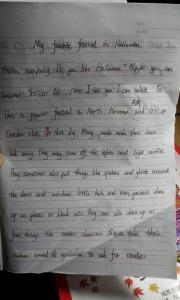 My favorite festival is Halloween
Hello, everybody! Do you like Halloween? Maybe you can
answer Yes or No. Now I tell you I can select Yes
This is popular festival in North America and it's on
October 31st. On that day Many people make their house
look scary. They may turn off the lights and light candles.
They sometimes also put things like spiders and ghosts around
the doors and windows. Little kids and even parents dress
up as ghosts or black cats. They can also dress up as
fun things like cartoon characters. Parents take their
children around the to ask for candies